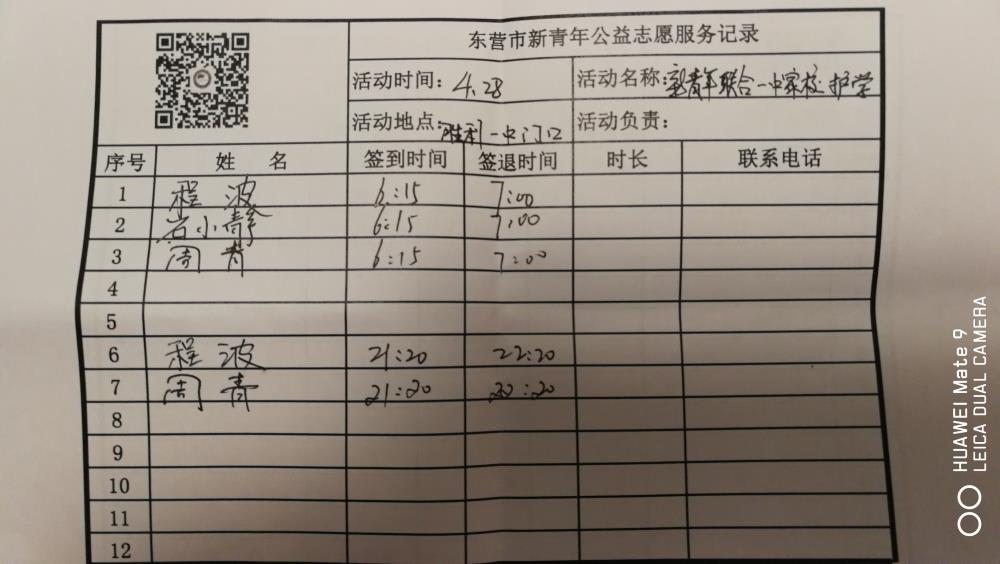 东营市新青年公益志愿服务记录
活动时间：4.28 活动名称：新青年联合一中家校护学
活动地点：胜利一中门口 活动负责：
序号 姓 名 签到时间 签退时间 时长 联系电话
1 程波 6:15 7:00
2 岩小静 6:15 7:00
3 周青 6:15 7:00
4
5
6 程波 21:20 22:20
7 周青 21:20 22:20
8
9
10
11
12
HUAWEI Mate 9
LEICA DUAL CAMERA